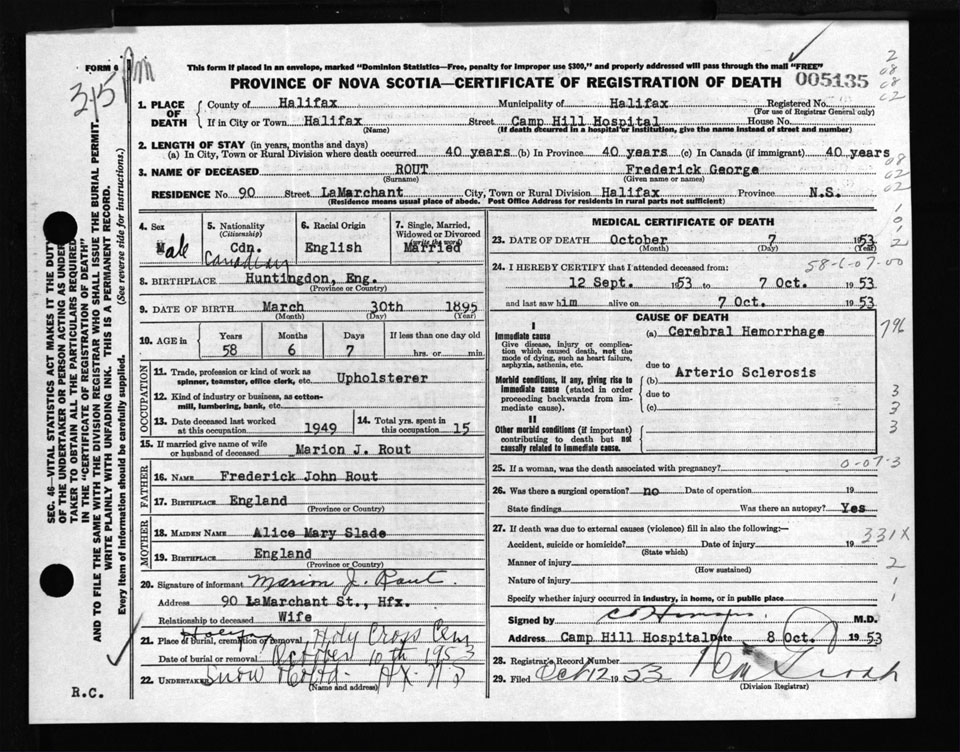 FORM 6
315 pm
This form if placed in an envelope, marked "Dominion Statistics—Free, penalty for improper use $300," and properly addressed will pass through the mail "FREE"
PROVINCE OF NOVA SCOTIA—CERTIFICATE OF REGISTRATION OF DEATH 005135
1. PLACE OF DEATH
County of Halifax Municipality of Halifax Registered No.
(For use of Registrar General only)
If in City or Town Halifax Street Camp Hill Hospital House No.
(Name) (If death occurred in a hospital or institution, give the name instead of street and number)
2. LENGTH OF STAY (in years, months and days)
(a) In City, Town or Rural Division where death occurred 40 years (b) In Province 40 years (c) In Canada (if immigrant) 40 years
3. NAME OF DECEASED ROUT Frederick George
(Surname) (Given name or names)
RESIDENCE No. 90 Street LaMarchant City, Town or Rural Division Halifax Province N.S.
(Residence means usual place of abode. Post Office Address for residents in rural parts not sufficient)
4. Sex
Male
5. Nationality
(Citizenship)
Cdn.
Canadian
6. Racial Origin
English
7. Single, Married, Widowed or Divorced
(write the word)
Married
8. BIRTHPLACE Huntingdon, Eng.
(Province or Country)
9. DATE OF BIRTH March 30th 1895
(Month) (Day) (Year)
10. AGE in Years Months Days If less than one day old
58 6 7 hrs. or min.
OCCUPATION
11. Trade, profession or kind of work as
spinner, teamster, office clerk, etc. Upholsterer
12. Kind of industry or business, as cotton-
mill, lumbering, bank, etc.
13. Date deceased last worked
at this occupation 1949
14. Total yrs. spent in
this occupation 15
15. If married give name of wife
or husband of deceased Marion J. Rout
FATHER
16. NAME Frederick John Rout
17. BIRTHPLACE England
(Province or Country)
MOTHER
18. MAIDEN NAME Alice Mary Slade
19. BIRTHPLACE England
(Province or Country)
20. Signature of informant Marion J. Rout.
Address 90 LaMarchant St., Hfx.
Relationship to deceased Wife
21. Place of burial, cremation or removal Halifax Holy Cross Cem
Date of burial or removal October 10th 1953
22. UNDERTAKER Snow
(Name and address)
MEDICAL CERTIFICATE OF DEATH
23. DATE OF DEATH October 7 1953
(Month) (Day) (Year)
58-6-07-00
24. I HEREBY CERTIFY that I attended deceased from:
12 Sept. 1953 to 7 Oct. 1953
and last saw him alive on 7 Oct. 1953
CAUSE OF DEATH
I
Immediate cause
Give disease, injury or complication which caused death, not the mode of dying, such as heart failure, asphyxia, asthenia, etc.
(a) Cerebral Hemorrhage
796
due to
Morbid conditions, if any, giving rise to immediate cause (stated in order proceeding backwards from immediate cause)
(b) Arterio Sclerosis
due to
(c)
II
Other morbid conditions (if important) contributing to death but not causally related to immediate cause.
3
3
3
25. If a woman, was the death associated with pregnancy?
0-07-3
26. Was there a surgical operation? no Date of operation 19
State findings Was there an autopsy? Yes
27. If death was due to external causes (violence) fill in also the following:—
Accident, suicide or homicide? Date of injury 19
(State which)
331X
Manner of injury
(How sustained)
2
Nature of injury
1
Specify whether injury occurred in industry, in home, or in public place
1
Signed by M.D.
Address Camp Hill Hospital Date 8 Oct. 1953
28. Registrar's Record Number
29. Filed Oct 12 1953
(Division Registrar)
SEC. 46—VITAL STATISTICS ACT MAKES IT THE DUTY
OF THE UNDERTAKER OR PERSON ACTING AS UNDER-
TAKER TO OBTAIN ALL THE PARTICULARS REQUIRED
IN THE "CERTIFICATE OF REGISTRATION OF DEATH"
AND TO FILE THE SAME WITH THE DIVISION REGISTRAR WHO SHALL ISSUE THE BURIAL PERMIT.
WRITE PLAINLY WITH UNFADING INK. THIS IS A PERMANENT RECORD.
Every item of information should be carefully supplied. (See reverse side for instructions.)
R.C.
2
08
08
02
08
02
02
1
0
1
2